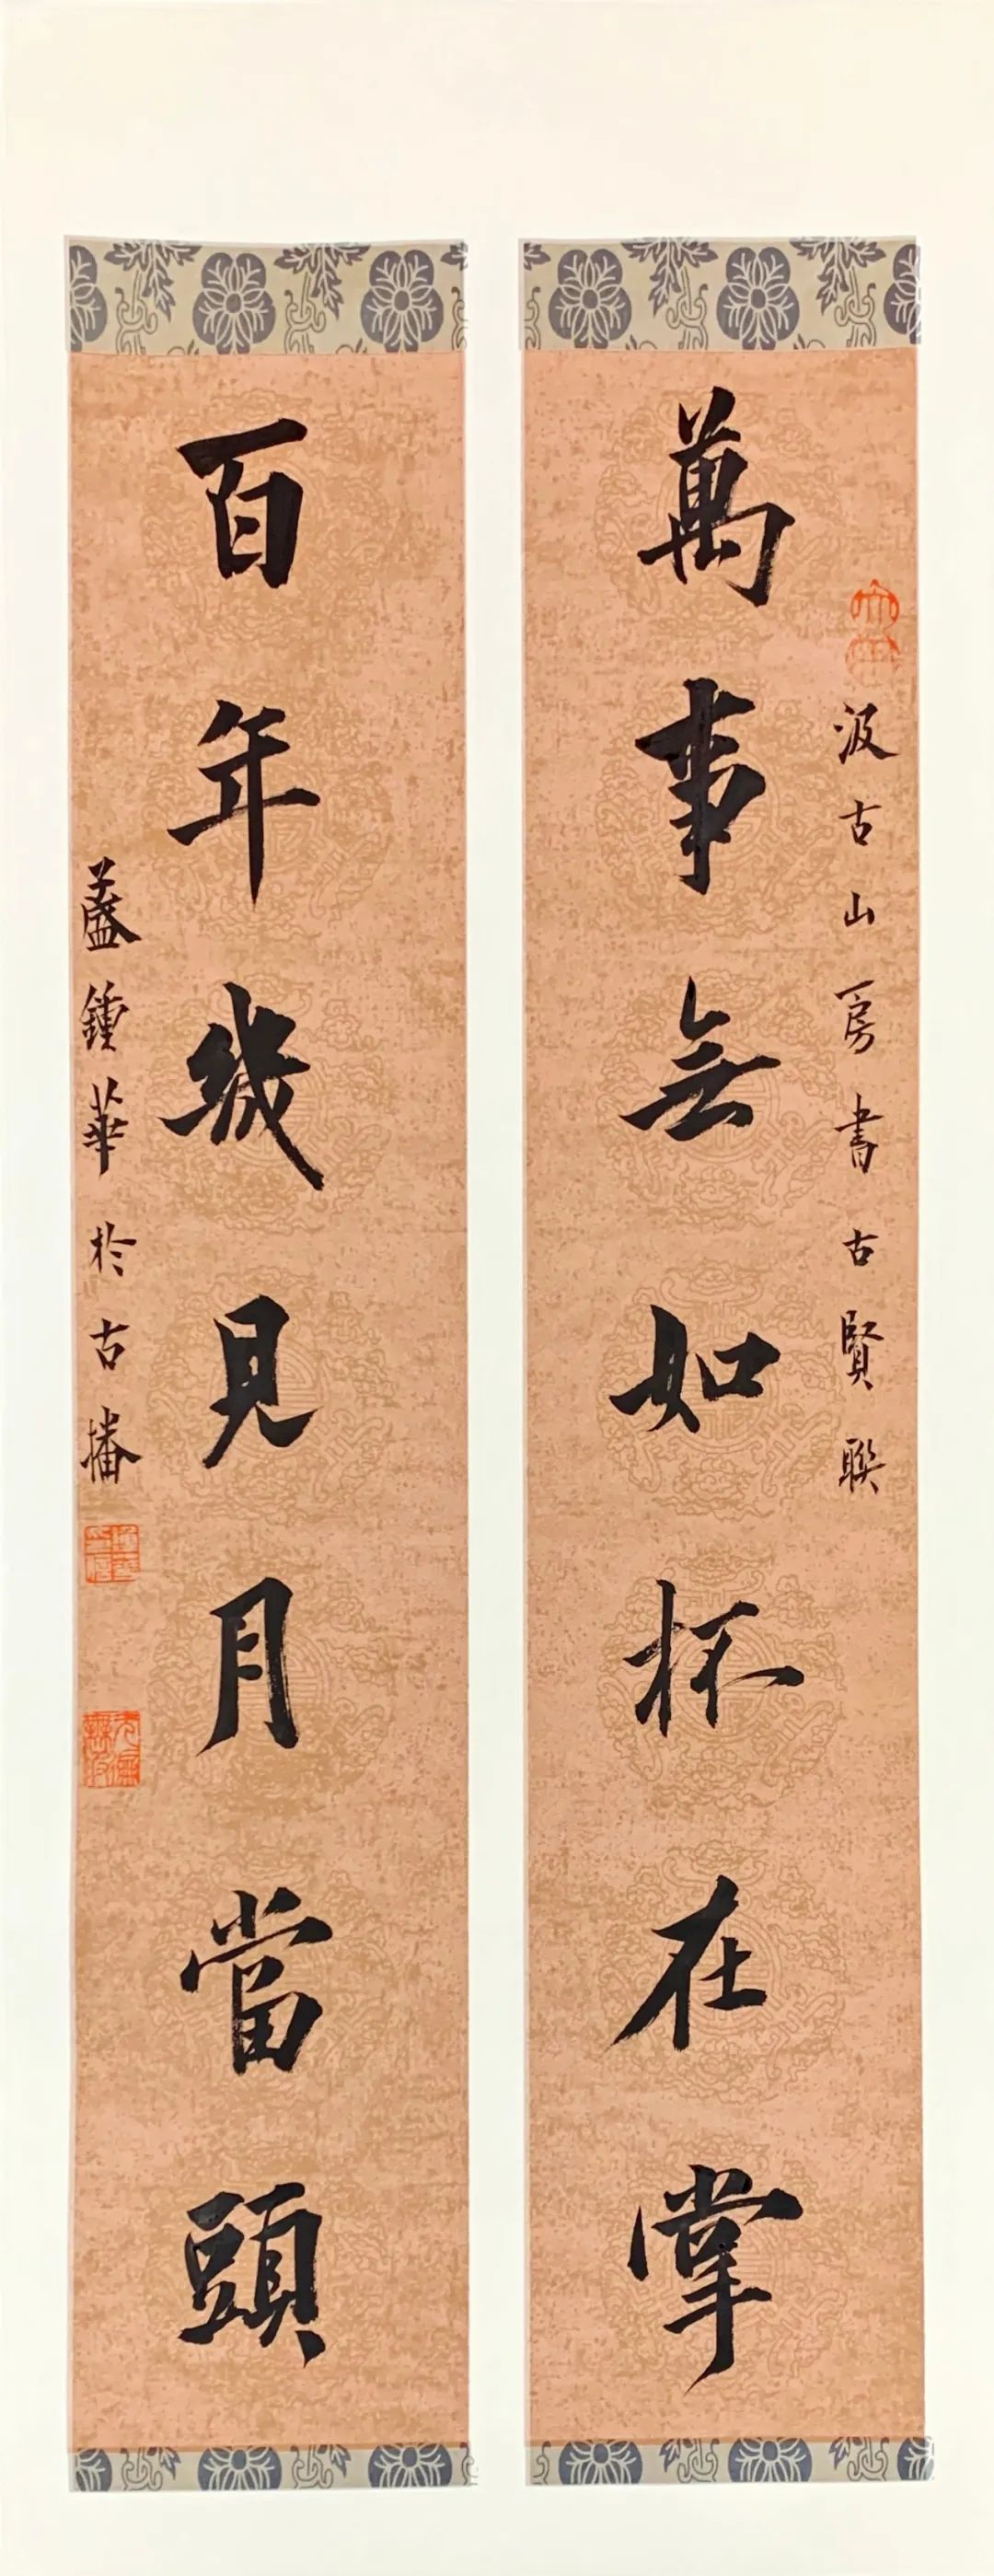 萬事無如杯在掌
汲古山房書古賢聯
百年幾見月當頭
蓋鍾華於古播